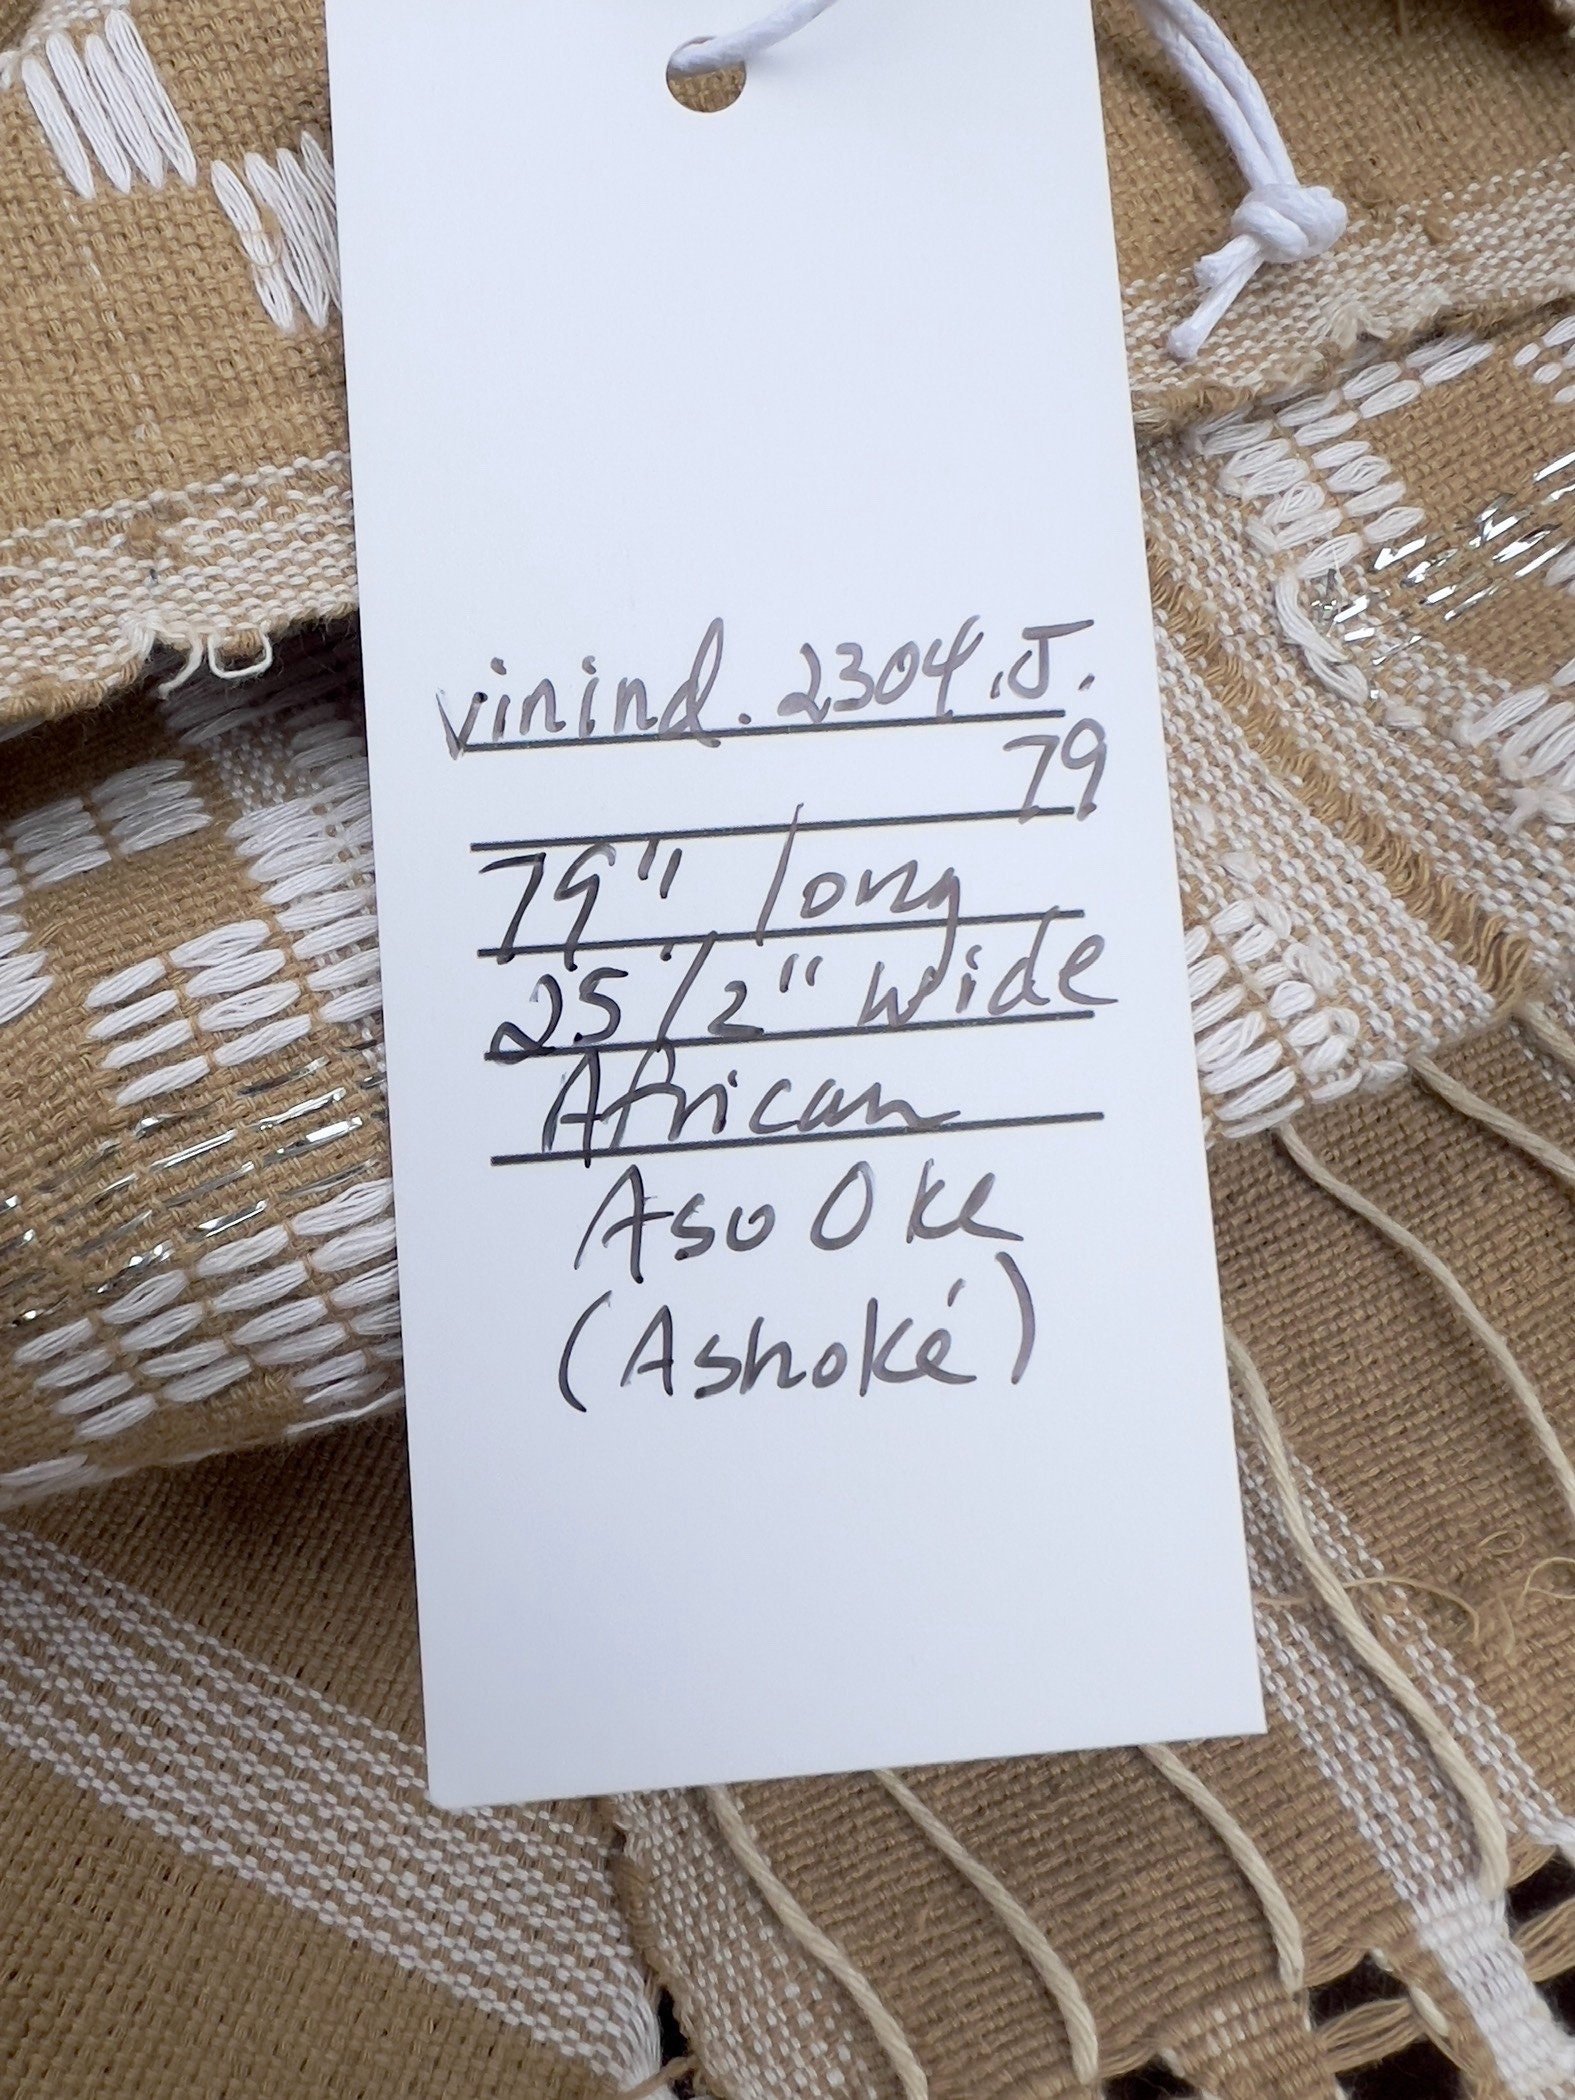 vinind. 2304.J.
79
79" long
25 1/2" wide
African
Aso Oke
(Ashoké)